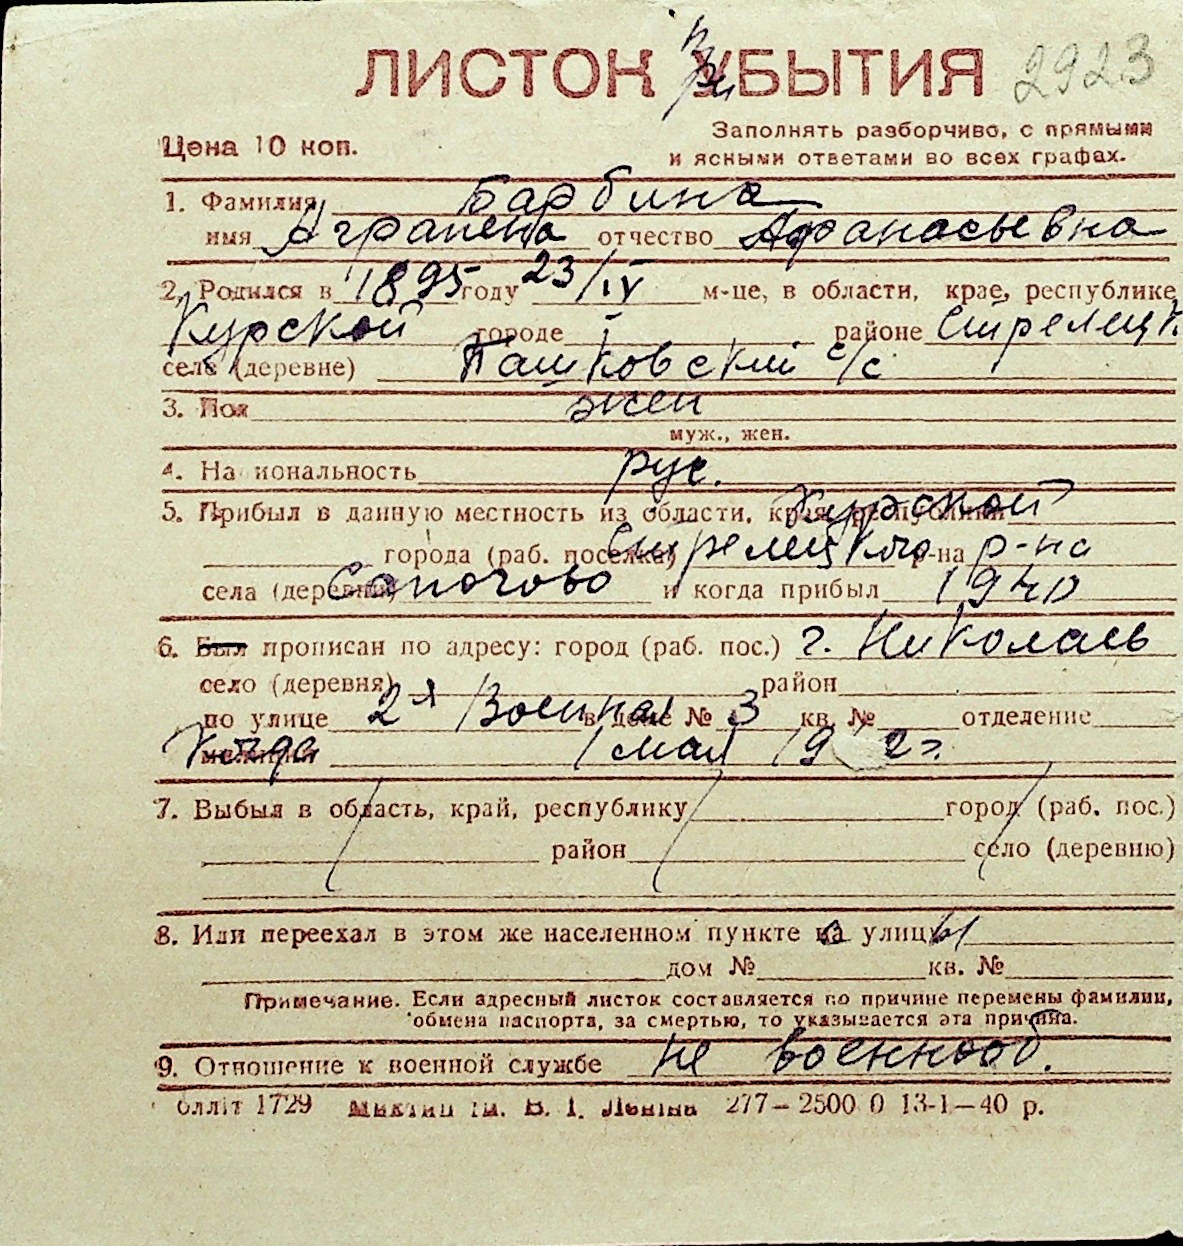 ЛИСТОК при УБЫТИЯ 2923
Цена 10 коп.
Заполнять разборчиво, с прямыми
и ясными ответами во всех графах.
1. Фамилия Барбина
имя Аграпена отчество Афанасьевна
2. Родился в 1895 году 23/IV м-це, в области, крае, республике
Курской городе районе Стрелецк.
селе (деревне) Пашковский с/с
3. Пол жен
муж., жен.
4. На иональность рус.
5. Прибыл в данную местность из области, края, республики Курской
города (раб. поселка) Стрелецкого р-на р-на
села (деревни) Сапогово и когда прибыл 1940
6. Был прописан по адресу: город (раб. пос.) г. Николаев
село (деревня) район
по улице 2я Военная в доме № 3 кв. № отделение
милиции 1 мая 19 2г.
7. Выбыл в область, край, республику город (раб. пос.)
район село (деревню)
8. Или переехал в этом же населенном пункте на улицы
дом № кв. №
Примечание. Если адресный листок составляется по причине перемены фамилии,
обмена паспорта, за смертью, то указывается эта причина.
9. Отношение к военной службе не военнооб.
бллiт 1729 В. І. Леніна 277—2500 0 13-1—40 р.